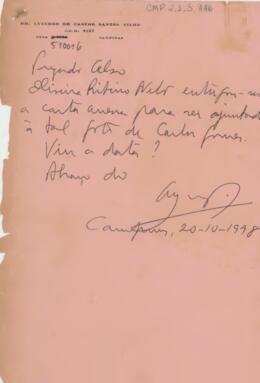 CMP 2.3.3.446
DR. LYCURGO DE CASTRO SANTOS FILHO
CAMPINAS
510016
Prezado Celso
Oliveira Ribeiro Neto entregou-me
a carta anexa para ser ajuntada
à tal foto de Carlos Gomes.
Viu a data?
Abraço do
Campinas, 20-10-1978